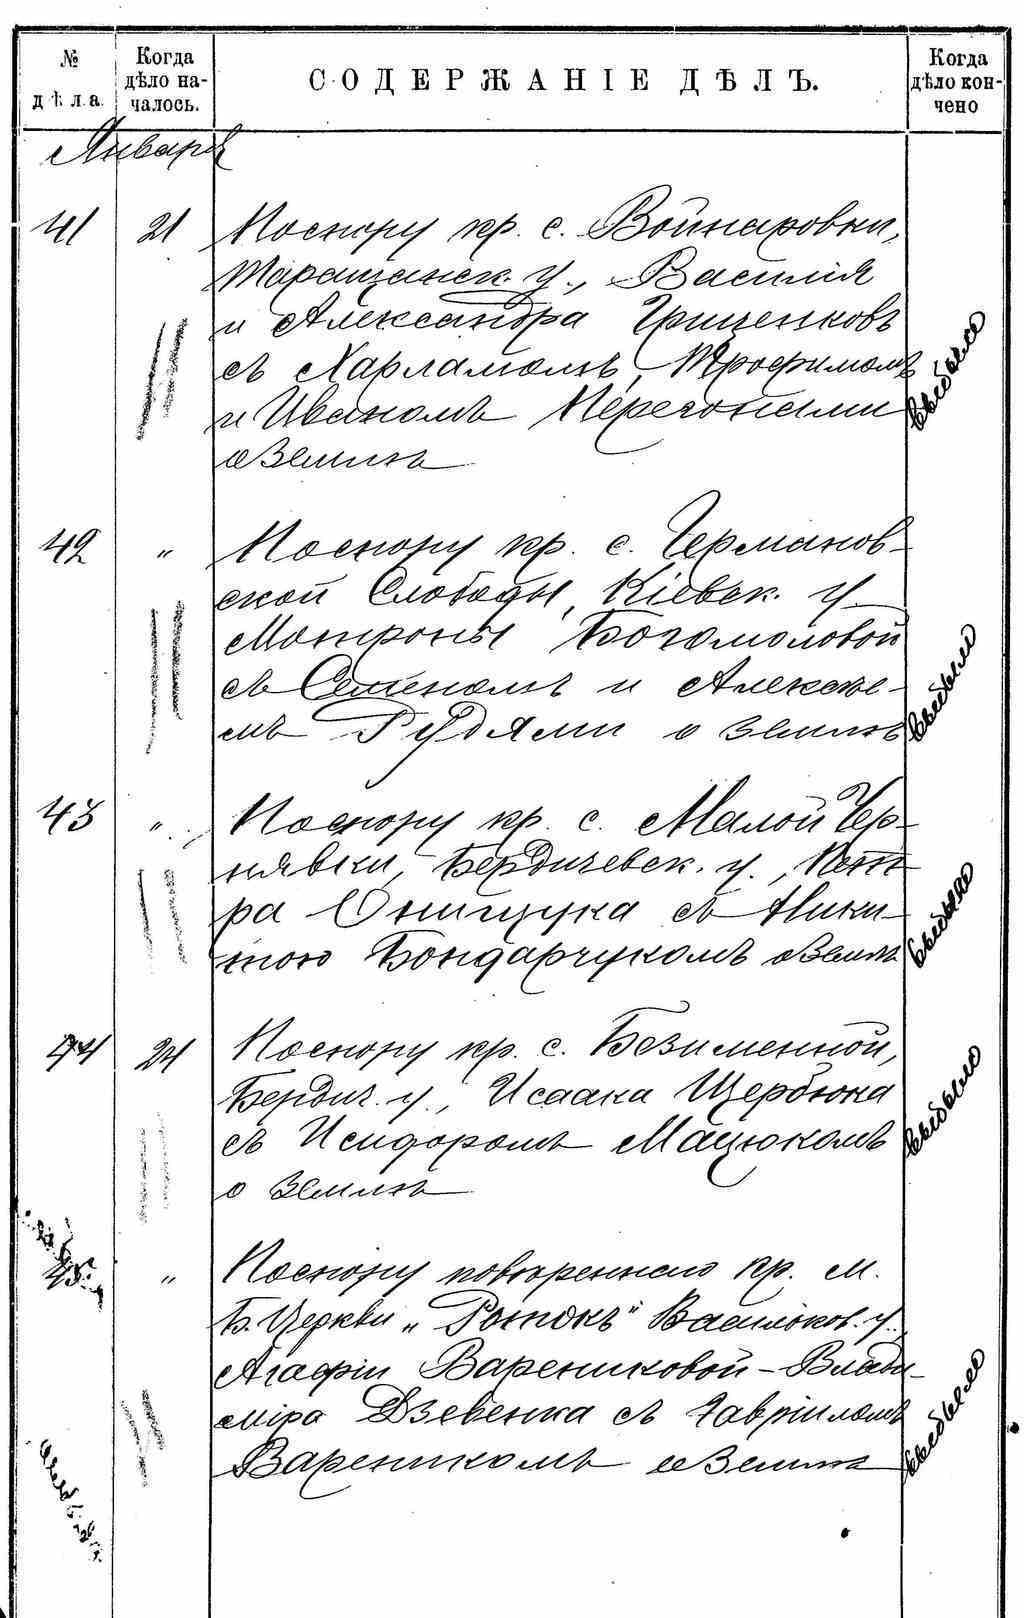 № дѣла.
Когда дѣло началось.
СОДЕРЖАНІЕ ДѢЛЪ.
Когда дѣло кончено
Января
41 21 По спору кр. с. Войнаровки,
Таращанск. у., Василія
и Александра Грищенковъ
съ Харламомъ, Трофимомъ
и Иваномъ Перегонами
о землѣ
выбыло
42 " По спору кр. с. Германов-
ской Слободы, Кіевск. у.
Матроны Богомоловой
съ Семеномъ и Алексѣе-
мъ Рудями о землѣ
выбыло
43 " По спору кр. с. Малой Чер-
нявки, Бердичевск. у., Пет-
ра Онищука съ Ники-
тою Бондарчукомъ о землѣ
выбыло
44 24 По спору кр. с. Безименной,
Бердич. у., Исаака Щербюка
съ Исидоромъ Мацюкомъ
о землѣ
выбыло
45 " По спору повѣреннаго кр. м.
Б. Церкви „Ротокъ" Васильков. у.
Агафіи Варениковой – Влади-
міра Дзевенка съ Гавріиломъ
Вареникомъ о землѣ
выбыло